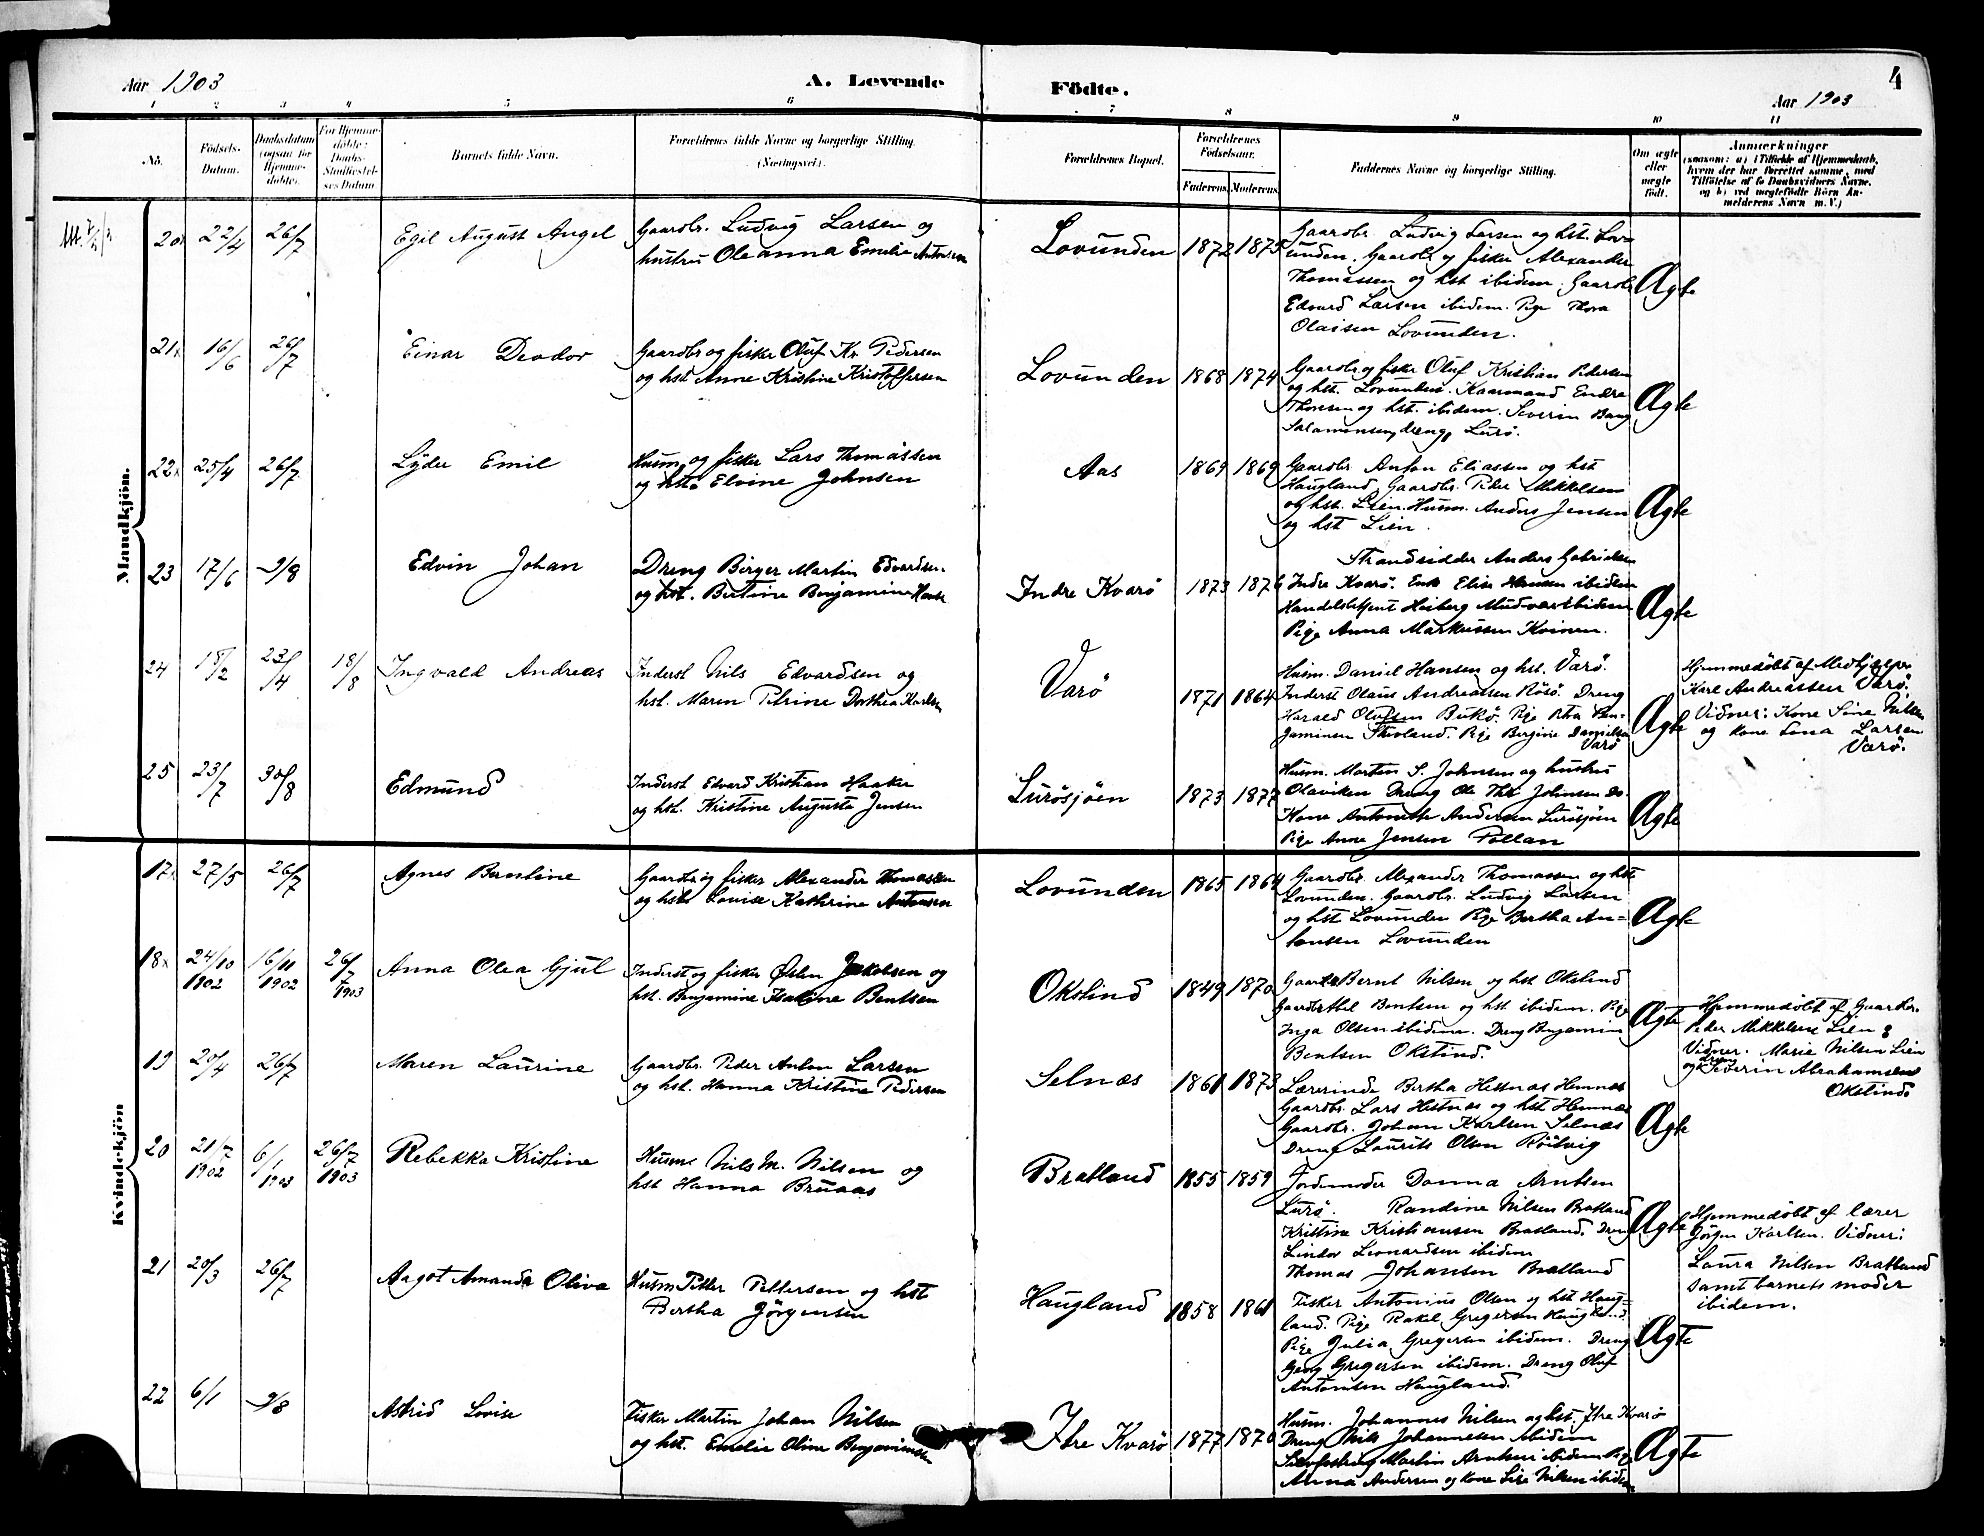 Aar 1903
A. Levende
Födte.
4
Aar 1903
1 2 3 4 5 6 7 8 9 10 11
No.
Födsels-
Datum.
Daabsdatum
(ogsaa for
Hjemme-
döbte).
For Hjemme-
döbte:
Daabs-
Stadfæstel-
ses Datum
Barnets fulde Navn.
Forældrenes fulde Navne og borgerlige Stilling.
(Næringsvei).
Forældrenes Bopæl.
Forældrenes
Födselsaar.
Faderens.
Moderens.
Faddernes Navne og borgerlige Stilling.
Om ægte
eller
uægte
födt.
Anmærkninger
(saasom: a) i Tilfælde af Hjemmedaab,
hvem der har forrettet samme, med
Tilföielse af to Daabsvidners Navne,
og b) ved uægtefödte Börn An-
melderens Navn m. V.)
Mandkjön.
20 22/4 26/7
Egil August Angel
Gaardbr. Ludvig Larsen og
hustru Oleanna Emelie Antonsen
Lovunden
1872 1875
Gaardbr. Ludvig Larsen og hst. Lov-
unden. Gaardbr og fisker Alexander
Thomassen og hst ibidem. Gaardb
Edvard Larsen ibidem. Pige Thora
Olaisen Lovunden.
Ægte
21x 16/6 26/7
Einar Deodor
Gaardbr og fisker Oluf Kr. Pedersen
og hst Anne Kristine Kristoffersen
Lovunden
1868 1874
Gaardbr og fisker Oluf Kristian Pedersen
og hst. Lovunden. Kaarmand Endre
Thoresen og hst. ibidem. Severin Bang
Salamonsen, dreng, Lurö.
Ægte
22x 25/4 26/7
Lÿder Emil
Husm. og fisker Lars Thomassen
og hst Elvine Johnsen
Aas
1869 1869
Gaardbr Anton Eliassen og hst
Haugland, Gaardbr. Peder Mikkelsen
og hst. Lien. Husm. Anders Jensen
og hst Lien.
Ægte
23 17/6 9/8
Edvin Johan
Dreng Birger Martin Edvardsen
og hst. Bertine Benjamine
Indre Kvarö
1873 1876
Strandsidder Anders Gabrielsen
Indre Kvarö. Enke Elise Hansen ibidem
Handelsbetjent Heiberg Mudvær ibidem
Pige Anna Markussen Kvinen.
Ægte
24 18/2 23/4 18/8
Ingvald Andreas
Inderst Nils Edvardsen og
hst. Maren Petrine Dorthea Karlsen
Varö
1871 1864
Husm. Daniel Hansen og hst. Varö.
Inderst Olaus Andreassen Rösö. Dreng
Harald Olufsen Bukö. Pige Petra Ben-
jaminsen Stuvland. Pige Bergine Danielsen
Varö
Ægte
Hjemmedöbt af Medhjælper
Karl Andreassen Varö.
Vidner: Kone Sine Nilsen
og Kone Lina Larsen
Varö.
25 23/7 30/8
Edmund
Inderst Edvard Kristian Haaker
og hst. Kristine Augusta Jensen
Lurösjöen
1873 1877
Husm. Morten S. Johnsen og hustru
Olaviken Dreng Ole Johnsen Do.
Kone Antonette Andersen Lurösjöen
Pige Anne Jensen Pollan
Ægte
Kvindekjön
17 27/5 26/7
Agnes Berntine
Gaardbr og fisker Alexander Thomassen
og hst Lovise Kathrine Antonsen
Lovunden
1865 1864
Gaardbr. Alexander Thomassen og hst
Lovunden. Gaardbr. Ludvig Larsen
og hst Lovunden Pige Bertha An-
tonsen Lovunden
Ægte
18x 24/10 1902 16/11 1902 26/7 1903
Anna Olea Gjul
Inderst og fisker Østen Jakobsen og
hst. Benjamine Isakine Bentsen
Okstind
1849 1870
Gaardbr Bernt Nilsen og hst Okstind
Gaardbr Abel Bentsen og hst. ibidem. Pige
Inga Olsen ibidem. Dreng Benjamin
Bentsen Okstind.
Ægte
Hjemmedöbt af Gaardbr.
Peder Mikkelsen Lien
Vidner. Marie Nilsen Lien
og dreng Severin Abrahamsen
Okstind
19 20/4 26/7
Maren Laurine
Gaardbr. Peder Anton Larsen
og hst. Hanna Kristine Pedersen
Selnæs
1861 1873
Lærerinde Bertha Hestnæs Hemnæs
Gaardbr. Lars Hestnæs og hst Hemnæs
Gaardbr. Johan Karlsen Selnæs
Dreng Laurits Olsen Röitvig
Ægte
20 21/7 1902 6/1 1903 26/7 1903
Rebekka Kristine
Husm Nils M. Nilsen og
hst Hanna Bruaas
Bratland
1855 1859
Jordmoder Donna Arntsen
Lurö. Randine Nilsen Bratland
Kristine Kristiansen Bratland. Dreng
Lindor Leonardsen ibidem
Thomas Johansen Bratland
Ægte
Hjemmedöbt af lærer
Jörgen Karlsen. Vidner:
Laura Nilsen Bratland
samt barnets moder
ibidem.
21 20/3 26/7
Aagot Amanda Oliva
Husm Petter Pettersen og hst
Bertha Jörgensen
Haugland
1858 1861
Fisker Antonius Olsen og hst Haug-
land. Pige Rakel Gregersen Haugland.
Pige Julia Gregersen ibidem. Dreng
Georg Gregersen ibidem. Dreng Oluf
Antonsen Haugland.
Ægte
22 6/1 9/8
Astrid Lovise
Fisker Martin Johan Nilsen
og hst. Emelie Oline Benjaminsen
Ytre Kvarö
1877 1876
Husm. Johannes Nilsen og hst. Ytre Kvarö
Dreng Nils Johannesen ibidem
Martin Arntsen ibidem Pige
Anna Andersen og kone Lise Nilsen ibidem
Ægte